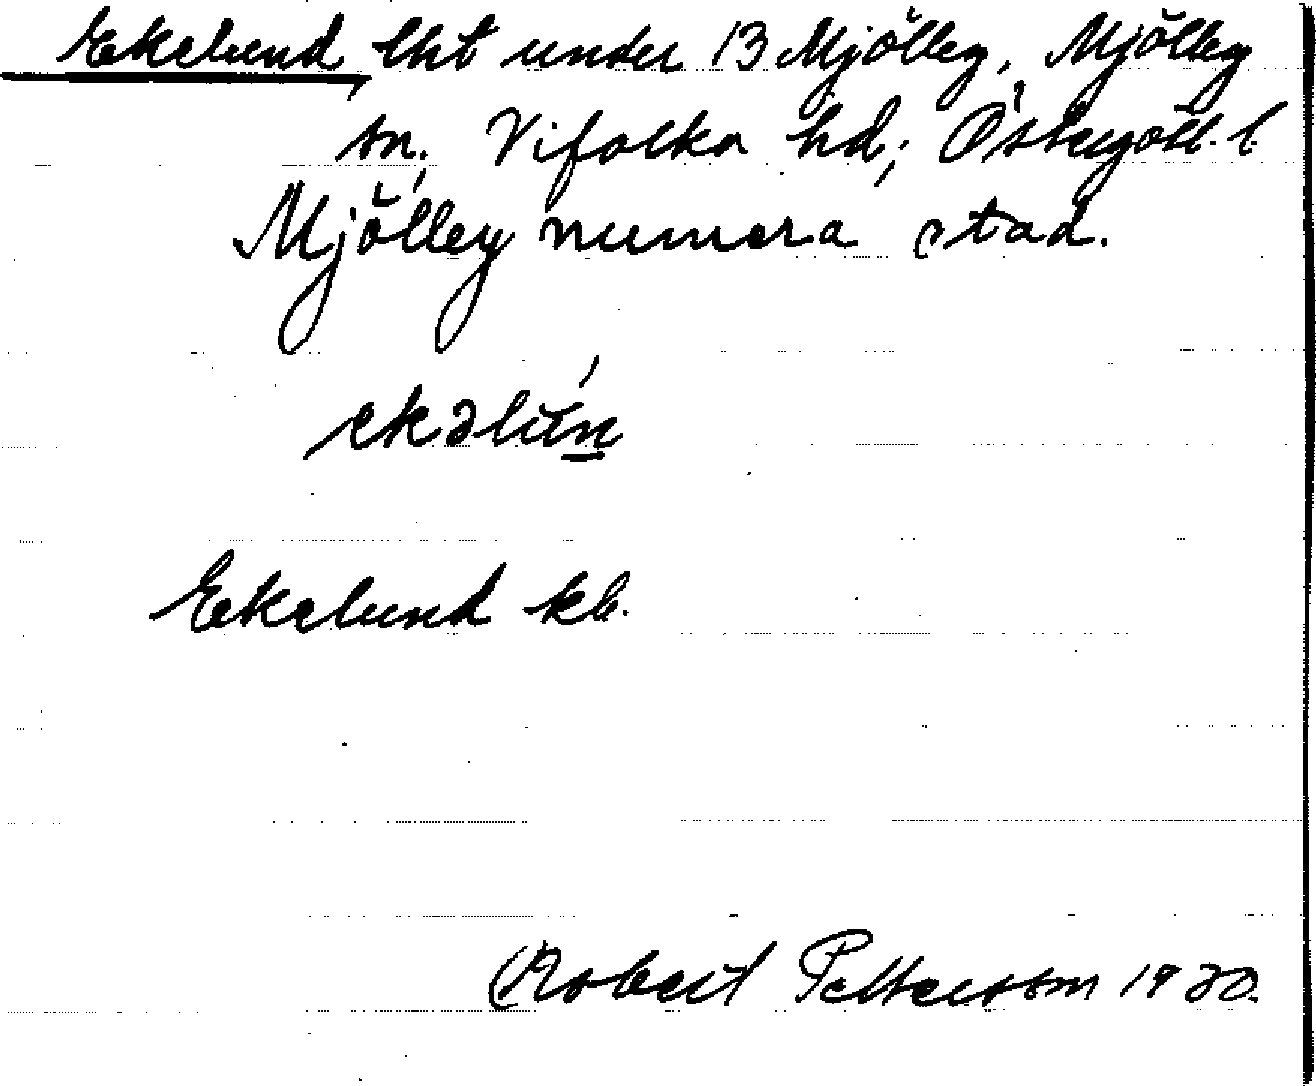 Ekelund lht under 13 Mjölby, Mjölby
sn, Vifolka hd; Östergötl. l.
Mjölby numera stad.
ekəlún
Ekelund kb.
Robert Pettersson 1930.